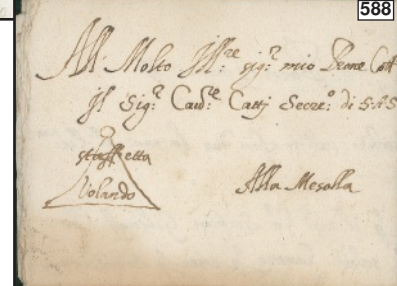 588
All Molto Ill.re sig.r mio Prone Coll
Il Sig.r Caul.re Catti Secret.o di S·A·S
staffetta
Volando
Alla Mesolla